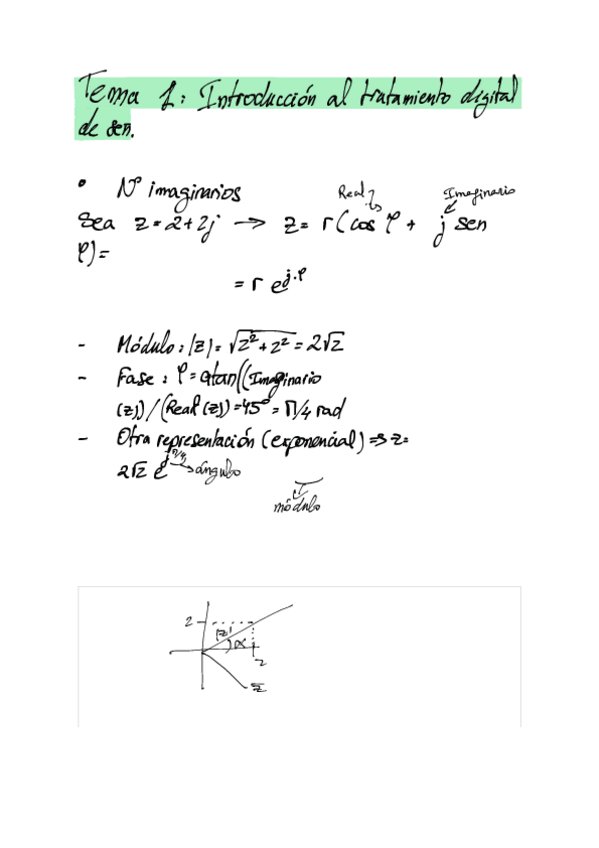 Tema 1: Introducción al tratamiento digital
de señ.
• Nº imaginarios
Real
Imaginario
Sea z=2+2j → z= r(cos φ + j sen
φ)=
= r e^j·φ
- Módulo: |z|= √2²+2² = 2√2
- Fase: φ=atan((Imaginario
(z))/(Real(z))=45º=π/4 rad
- Otra representación (exponencial) => z=
2√2 e^jπ/4 → ángulo
módulo
2
|z|
α
2
z̅